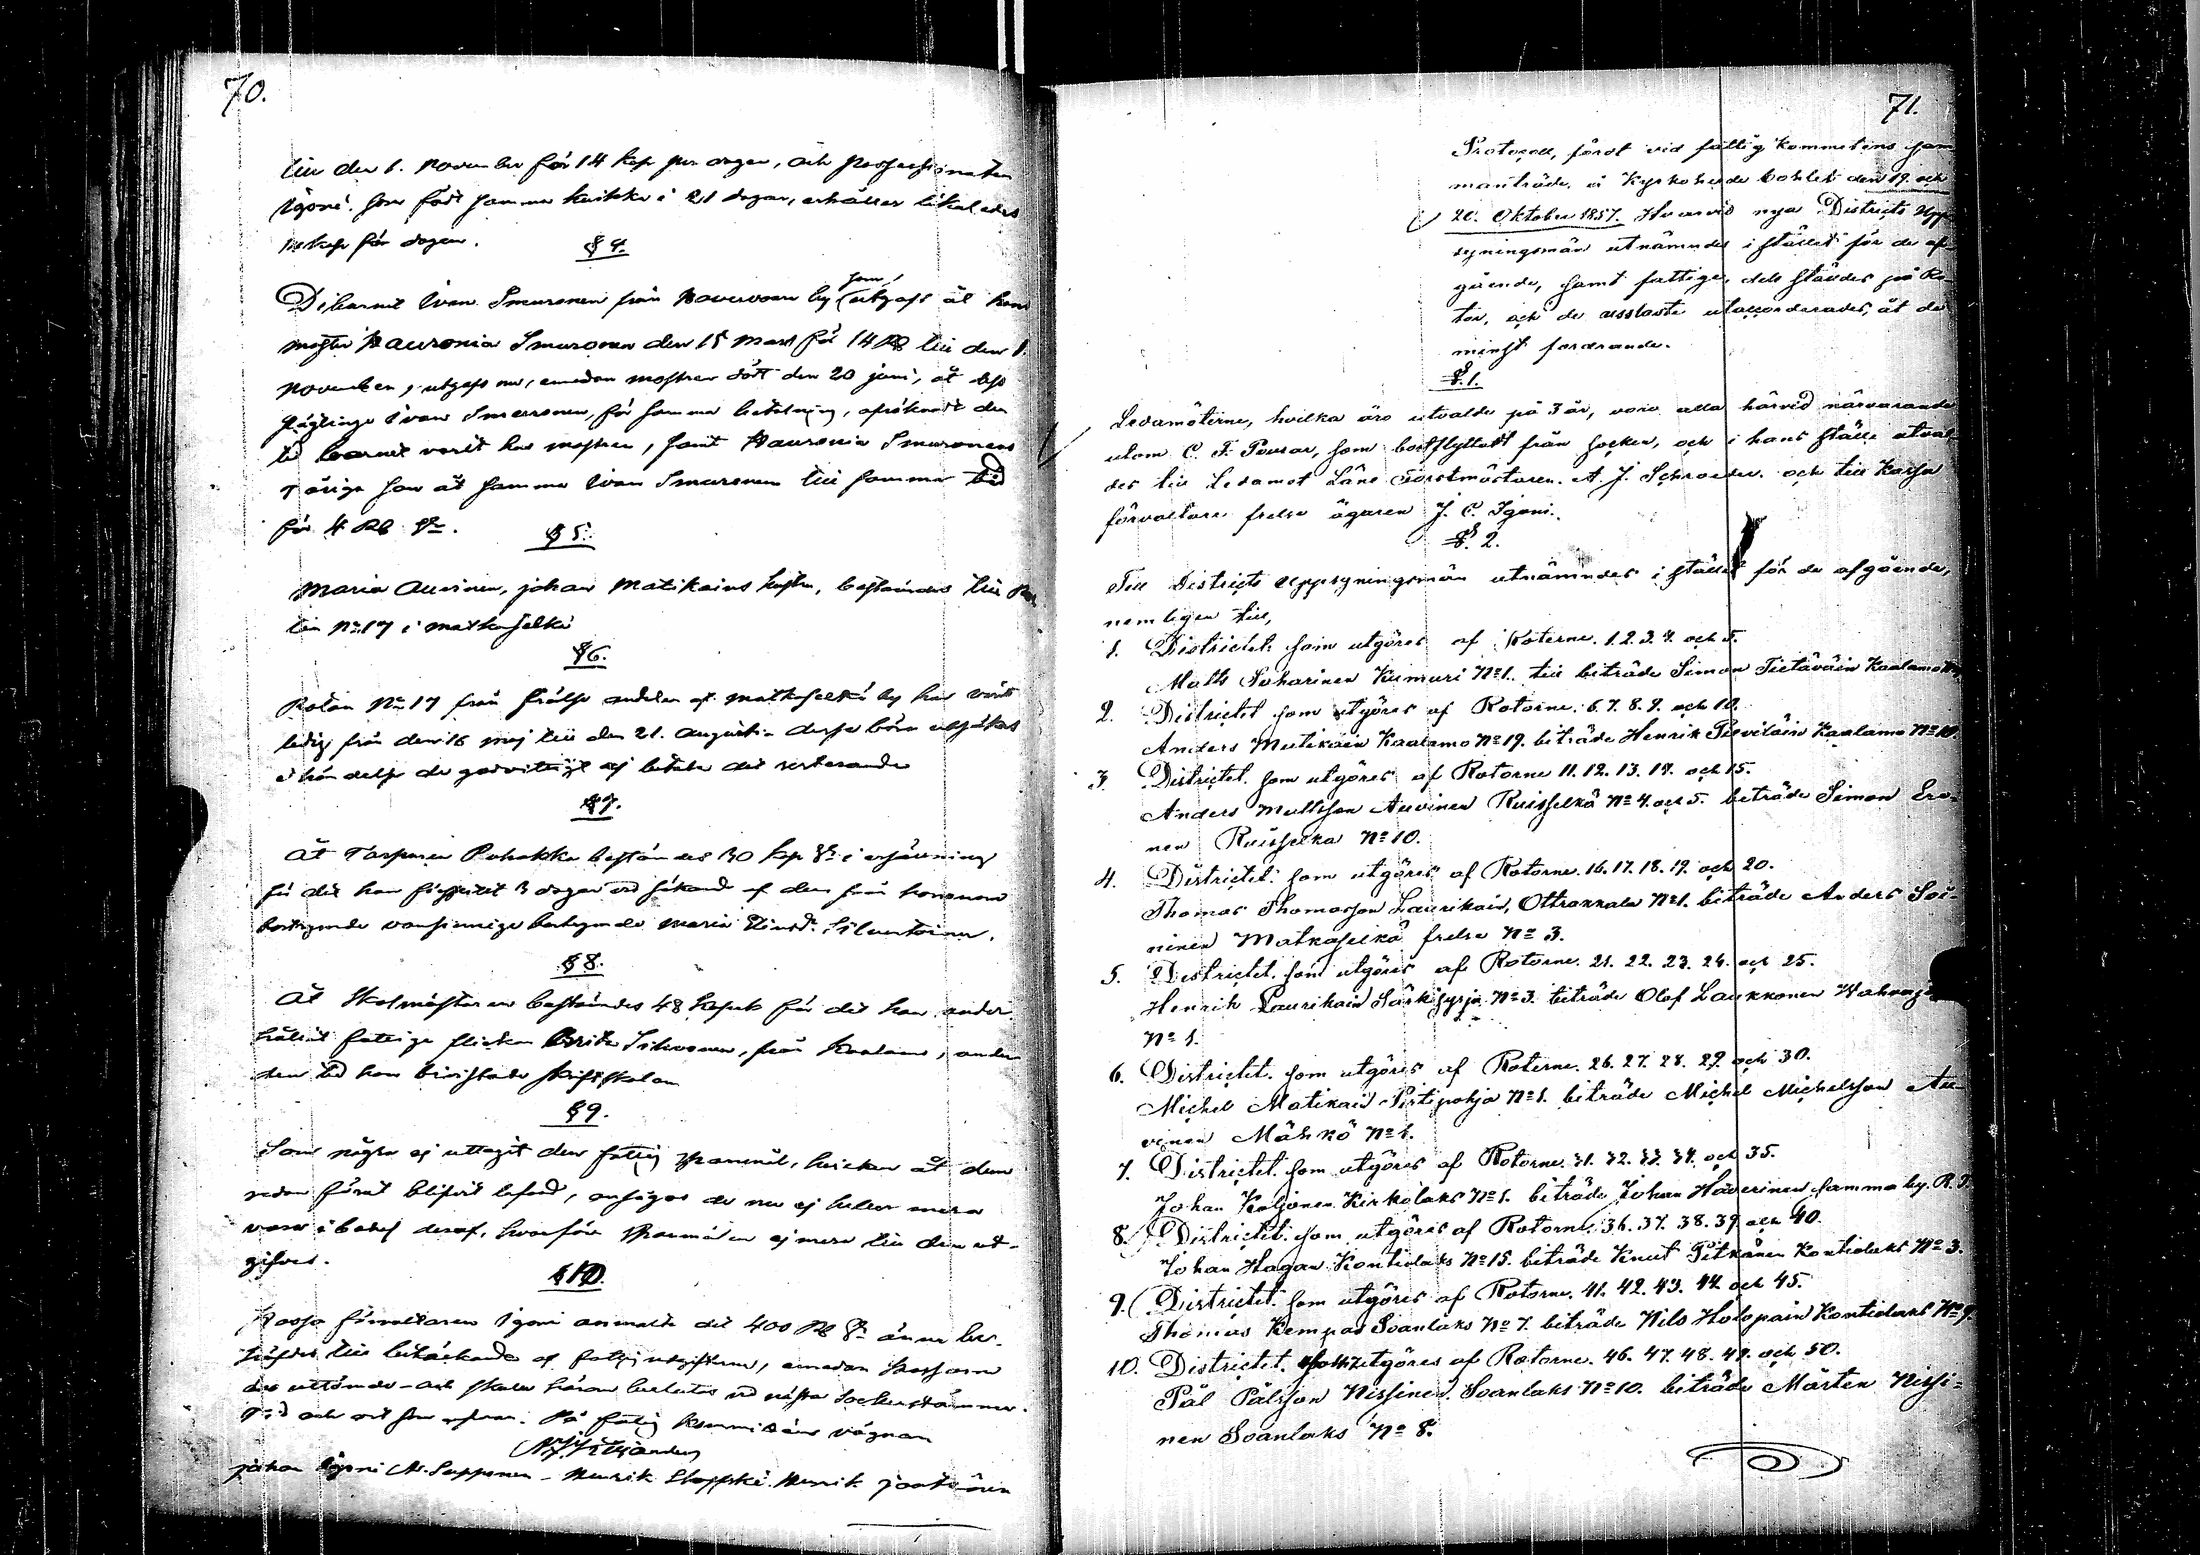 70.
till den 1. November för 14 kop per dagen, och possessionaten
Igoni, som födt samma huikka i 21 dagar, erhåller likaledes
kop för dagen.
§ 4.
Dibarnet Ivan Smuronen från by som utgafs åt hans
moster Smuronen den 15 Mars för 14 Rb till den 1.
November, utgafs nu, emedan mostren dött den 20 Juni, åt
Ivan Smuronen, för samma betalning, afräknadt den
tid barnet varit hos mostren, samt Smuronens
åriga son åt samma Ivan Smuronen till samma tid
för 4 Rb Sr.
§ 5.
Maria Auvinen, Johan Matikains hustru, bestämdes till Ro-
ten No 17 i Matkaselkä
§ 6.
Rotan No 17 från frälse andelen af Matkaselkä by har varit
ledig från den 16 Maj till den 21. Augusti. desse böra utsökas
i händelse de godvilligt ej betala det resterande
§ 7.
Åt Pohakka bestämdes 30 kop Sr i ersättning
för det han 3 dagar vid sökand af den från honom
vansinniga Maria
§ 8.
Åt Skolmästaren bestämdes 48 kopek för det han under-
hållit fattiga flickan Brita Sihvonen, från Kaalamo, under
den tid hon bivistade skriftskolan
§ 9.
Som några ej uttagit den fattig spanmål, hvilken åt dem
redan förut blifvit bestämd, ansågos de nu ej heller mera
vara i behof deraf, hvarföre spanmålen ej mera till dem ut-
gifves.
§ 10.
Kassa förvaltaren Igoni anmälte det 400 Rb Sr ännu be-
höfdes till betäckande af fattig utgifterna, emedan kassan
är uttömd och skulle härom beslutas vid nästa Sockenstämma.
På fattig kommiténs vägnar
Johan Igoni M. Sepponen Henrik Henrik
71.
Protocoll, fördt vid fattig Kommiténs sam
manträde, i Kyrkoherde bohlet den 19. och
20. Oktober 1857. Hvarvid nya Districts Upp
syningsmän utnämndes i stället för de af-
gående, samt fattige, dels ställdes på Ro-
tar, och de usslaste utaccorderades, åt de
minst fordrande.
§. 1.
Ledamöterne, hvilka äro utvalde på 3 år, voro alla härvid närvarande
utom C. F. Pousar, som bortflyttat från socken, och i hans ställe utval-
des till Ledamot Läns Forstmästaren. A. J. Schroeder. och till Kassa
förvaltare frelse ägaren J. C. Igoni.
§. 2.
Till Districts Uppsyningsmän utnämndes i stället för de afgående,
nemligen till,
1. Districtet. som utgöres af Roterne. 1. 2. 3. 4. och 5.
Matts Soharinen Kumuri No 1. till biträde Simon Tietäväin Kaalamo No
2. Districtet som utgöres af Roterne. 6. 7. 8. 9. och 10.
Anders Matikain Kaalamo No 19. biträde Henrik Pirviläin Kaalamo No 10.
3. Districtet. som utgöres af Roterne 11. 12. 13. 14. och 15.
Anders Mattsson Auvinen Ruisselkä No 4. och 5. beträde Simon Ero-
nen Ruisselka No 10.
4. Districtet. som utgöres af Roterne. 16. 17. 18. 19. och 20.
Thomas Thomasson Laurikain, Ottrakkala No 1. biträde Anders Soi-
ninen Matkaselkä frelse No 3.
5. Districtet. som utgöres af Roterne. 21. 22. 23. 24. och 25.
Henrik Laurikain Särkisyrja No 3. biträde Olof Laukkonen
No 1.
6. Districtet. som utgöres af Roterne. 26. 27. 28. 29. och 30.
Michel Matikain Pirtipohja No 1. biträde Michel Michelsson Au-
vinen Mähkö No 1.
7. Districtet. som utgöres af Roterne. 31. 32. 33. 34. och 35.
Johan Koljonen Kirkolaks No 1. beträde Johan Häverinen samma by. R. J.
8. Districtet. som utgöres af Roterne. 36. 37. 38. 39. och 40.
Johan Hagan Kontiolaks No 15. beträde Knut Pitkänen Kontiolaks No 3.
9. Districtet. som utgöres af Roterne. 41. 42. 43. 44. och 45.
Thomas Kempas Soanlaks No 7. beträde Nils Holopain Kontiolaks No 9.
10. Districtet. som utgöres af Roterne. 46. 47. 48. 49. och 50.
Pål Pålsson Nissinen. Soanlaks No 10. beträde Mårten Nissi-
nen Soanlaks No 8.